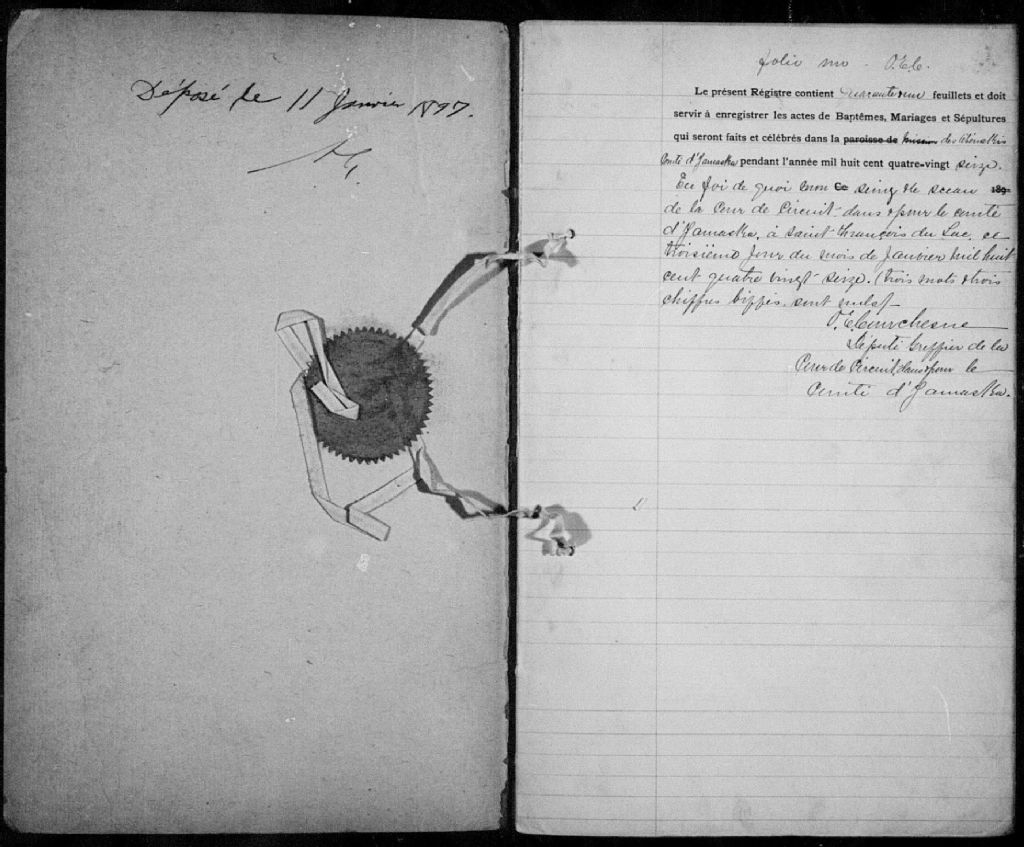 Déposé le 11 Janvier 1897.
folio un O.E.C.
Le présent Régistre contient quarante-un feuillets et doit
servir à enregistrer les actes de Baptêmes, Mariages et Sépultures
qui seront faits et célébrés dans la paroisse de mission des Abénakis
Comté d'Yamaska pendant l'année mil huit cent quatre-vingt seize.
En foi de quoi mon Ce seing & le sceau 189
de la Cour de Circuit dans & pour le comté
d'Yamaska, à Saint François du Lac, ce
troisième jour du mois de Janvier mil huit
cent quatre vingt seize. (trois mots & trois
chiffres biffés sont nuls)
O.E. Courchesne
Député Greffier de la
Cour de Circuit, dans & pour le
Comté d'Yamaska.